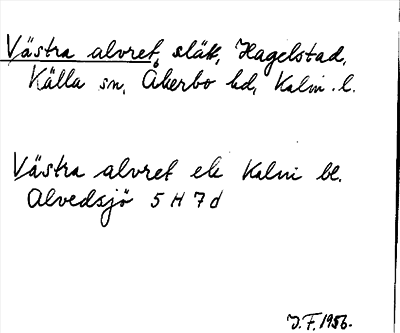 Västra alvret, slätt, Hagelstad,
Källa sn, Åkerbo hd, Kalm. l.
Västra alvret ek Kalm bl.
Alvedsjö 5 H 7 d
J.F. 1956.